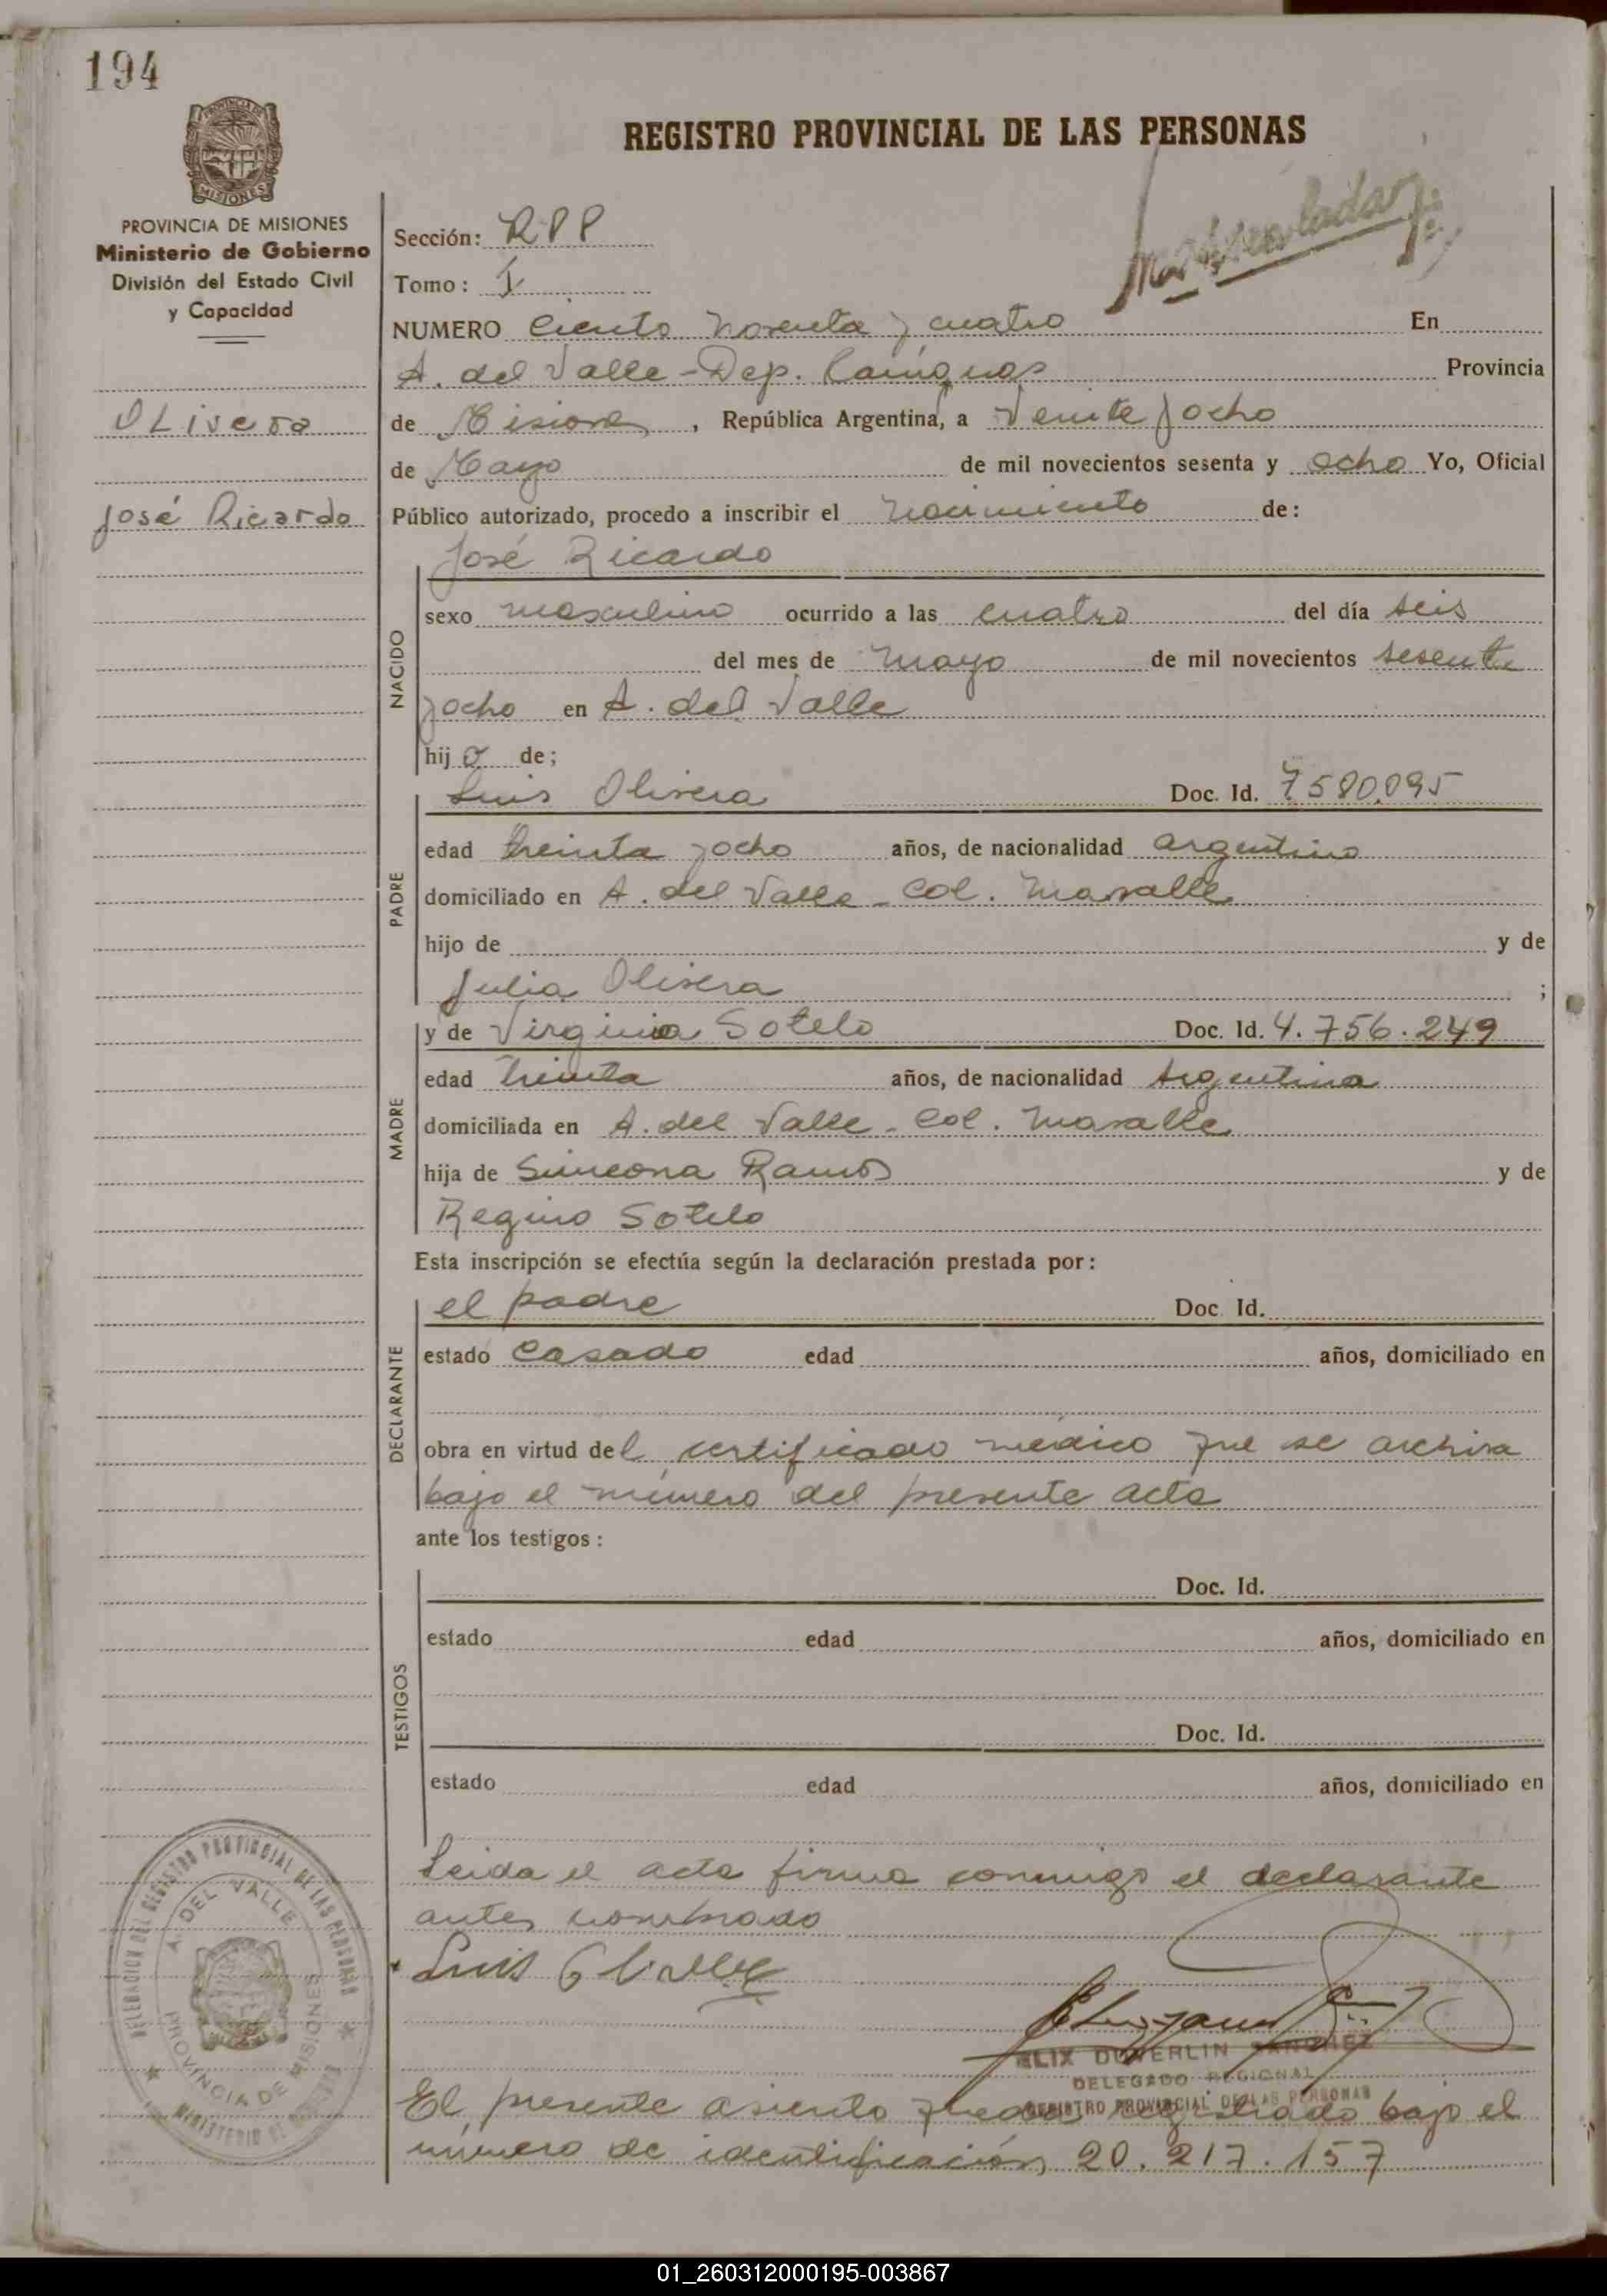 194
REGISTRO PROVINCIAL DE LAS PERSONAS
PROVINCIA DE MISIONES
Ministerio de Gobierno
División del Estado Civil
y Capacidad
OLivera
José Ricardo
Sección: RPP
Tomo: I
NUMERO Ciento noventa y cuatro En
A. del Valle - Dep. Cainguas Provincia
de Misiones, República Argentina, a Veinte y ocho
de Mayo de mil novecientos sesenta y ocho Yo, Oficial
Público autorizado, procedo a inscribir el nacimiento de:
José Ricardo
NACIDO
sexo masculino ocurrido a las cuatro del día seis
del mes de mayo de mil novecientos sesenta
y ocho en A. del Valle
hijo de;
PADRE
Luis Olivera Doc. Id. 7580.095
edad treinta y ocho años, de nacionalidad argentino
domiciliado en A. del Valle - Col.
hijo de y de
Julia Olivera ;
MADRE
y de Virginia Sotelo Doc. Id. 4.756.249
edad treinta años, de nacionalidad Argentina
domiciliada en A. del Valle - Col.
hija de Simeona Ramos y de
Regino Sotelo
Esta inscripción se efectúa según la declaración prestada por:
DECLARANTE
el padre Doc. Id.
estado Casado edad años, domiciliado en
obra en virtud del certificado médico que se archiva
bajo el número del presente acta
ante los testigos:
TESTIGOS
Doc. Id.
estado edad años, domiciliado en
Doc. Id.
estado edad años, domiciliado en
Leida el acta firma conmigo el declarante
antes nombrado
Luis
DELEGACION DEL REGISTRO PROVINCIAL DE LAS PERSONAS
A. DEL VALLE
PROVINCIA DE MISIONES
MINISTERIO DE GOBIERNO
DELEGADO REGIONAL
REGISTRO PROVINCIAL DE LAS PERSONAS
El presente asiento queda registrado bajo el
número de identificación 20.217.157
01_260312000195-003867